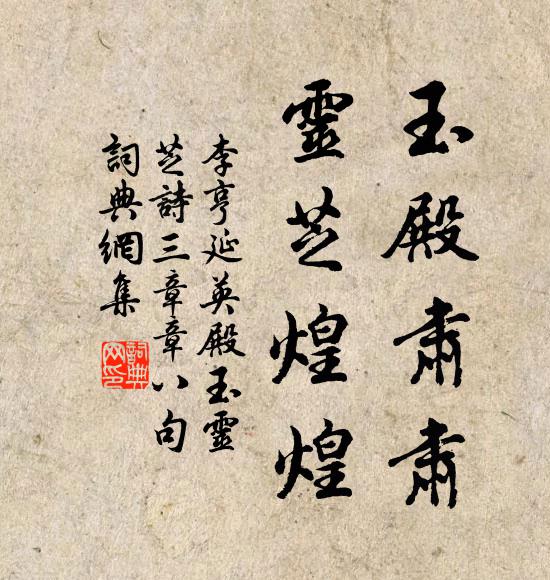 玉殿肅肅
靈芝煌煌
李亨延英殿玉靈
芝詩三章章八句
詞典網集
詞典
网印